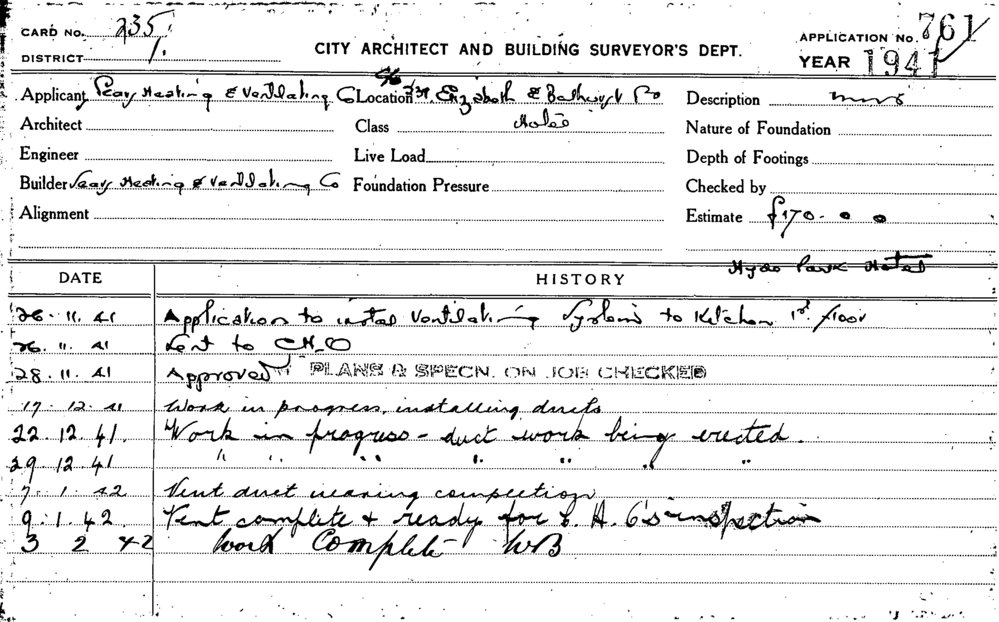 CARD NO. 235
DISTRICT 1.
CITY ARCHITECT AND BUILDING SURVEYOR'S DEPT.
APPLICATION NO. 761
YEAR 1941
Applicant Heating & Ventilating Co Location Elizabeth & Bathurst Description
Architect Class Hotel Nature of Foundation
Engineer Live Load Depth of Footings
Builder Heating & Ventilating Co Foundation Pressure Checked by
Alignment Estimate £170.0.0
Hyde Park Hotel
DATE HISTORY
26.11.41 Application to instal Ventilating System to Kitchen 1st floor
26.11.41 Sent to C.H.O
28.11.41 Approved PLANS & SPECN. ON JOB CHECKED
17.12.41 Work in progress, installing ducts
22.12.41. Work in progress - duct work being erected.
29.12.41 " " " " " " "
7.1.42 Vent duct nearing completion
9.1.42. Vent complete & ready for C.H.O's inspection
3 2 42 Work Complete WB